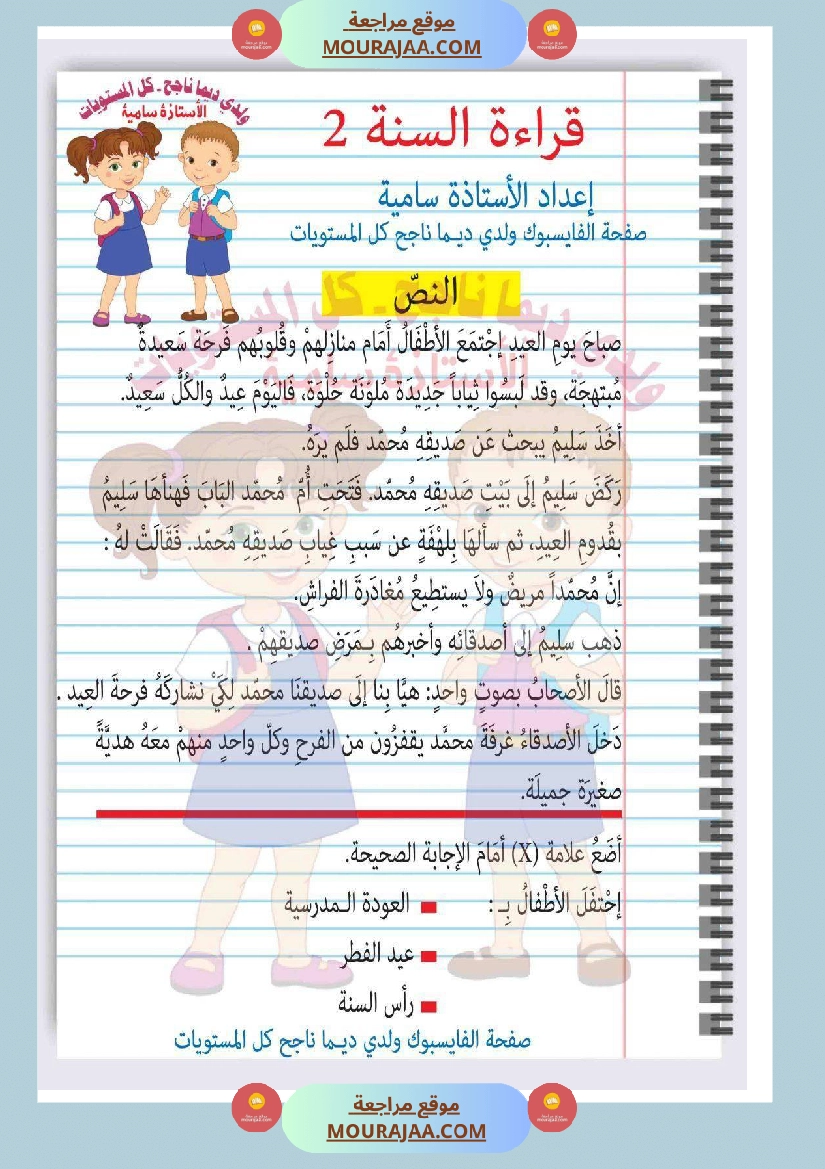 موقع مراجعة
MOURAJAA.COM
ولدي ديما ناجح - كل المستويات
الأستاذة سامية
قراءة السنة 2
إعداد الأستاذة سامية
صفحة الفايسبوك ولدي ديـما ناجح كل المستويات
النصّ
صباحَ يومِ العيدِ إجْتمَعَ الأطْفَالُ أَمَام منازِلِهِمْ وقُلوبُهم فَرحَة سَعيدةٌ
مُبتهجَة، وقد لَبسُوا ثِياباً جَدِيدَة مُلوّنَة حُلْوَة، فَاليَوْمَ عِيدٌ والكُلُّ سَعِيدٌ.
أخَذَ سَلِيمُ يبحثُ عَن صَديقِهِ مُحمّد فلَم يرَهُ.
رَكَضَ سَلِيمُ إلَى بَيْتِ صَديقِهِ مُحمّد. فَتَحَتِ أُمّ مُحمّد البَابَ فَهنأهَا سَلِيمُ
بقُدومِ العِيدِ، ثم سألهَا بِلهْفَةٍ عن سَببِ غِيابِ صَديقِهِ مُحمّد. فَقَالَتْ لهُ :
إنَّ مُحمّداً مريضٌ ولاَ يستطِيعُ مُغادَرةَ الفراشِ.
ذهب سلِيمُ إلى أصدقائِه وأخبرهُم بِـمَرَضِ صديقهِمْ .
قالَ الأصحابُ بصوتٍ واحدٍ: هيَّا بِنا إلَى صديقنَا محمّد لِكَيْ نشاركَهُ فرحةَ العِيد .
دَخلَ الأصدقاءُ غرفَةَ محمَّد يقفزُون من الفرحِ وكلّ واحدٍ منهمْ معَهُ هديَّةً
صغيرَة جميلَة.
أضَعُ علامة (X) أمَامَ الإجابة الصحيحة.
إحْتفَلَ الأطْفالُ بِـ : العودة الـمدرسية
عيد الفطر
رأس السنة
صفحة الفايسبوك ولدي ديـما ناجح كل المستويات
موقع مراجعة
MOURAJAA.COM